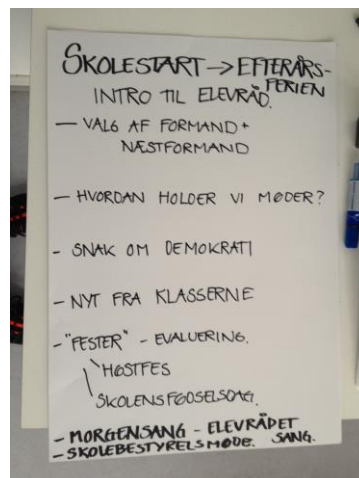 SKOLESTART → EFTERÅRS-
FERIEN
INTRO TIL ELEVRÅD.
— VALG AF FORMAND +
NÆSTFORMAND
— HVORDAN HOLDER VI MØDER?
- SNAK OM DEMOKRATI
- NYT FRA KLASSERNE
- "FESTER" - EVALUERING.
HØSTFES
SKOLENS FØDSELSDAG.
- MORGENSANG - ELEVRÅDET
SANG.
- SKOLEBESTYRELSMØDE.